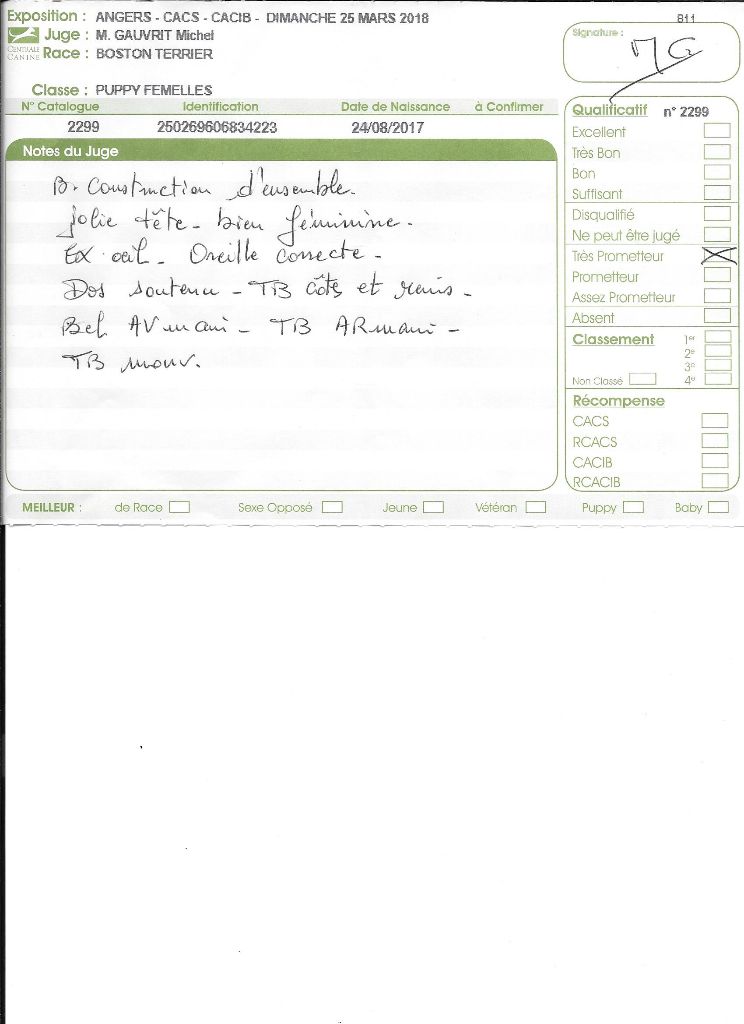 Exposition : ANGERS - CACS - CACIB - DIMANCHE 25 MARS 2018
811
CENTRALE CANINE
Juge : M. GAUVRIT Michel
Race : BOSTON TERRIER
Signature :
MG
Classe : PUPPY FEMELLES
N° Catalogue Identification Date de Naissance à Confirmer
2299 250269606834223 24/08/2017
Notes du Juge
B. Construction d'ensemble.
jolie tête - bien féminine.
EX œil - Oreille correcte -
Dos soutenu - TB côts et reins -
Bel AVmain - TB ARmain -
TB mouv.
Qualificatif n° 2299
Excellent
Très Bon
Bon
Suffisant
Disqualifié
Ne peut être jugé
Très Prometteur
Prometteur
Assez Prometteur
Absent
Classement 1er
2e
3e
Non Classé 4e
Récompense
CACS
RCACS
CACIB
RCACIB
MEILLEUR : de Race Sexe Opposé Jeune Vétéran Puppy Baby